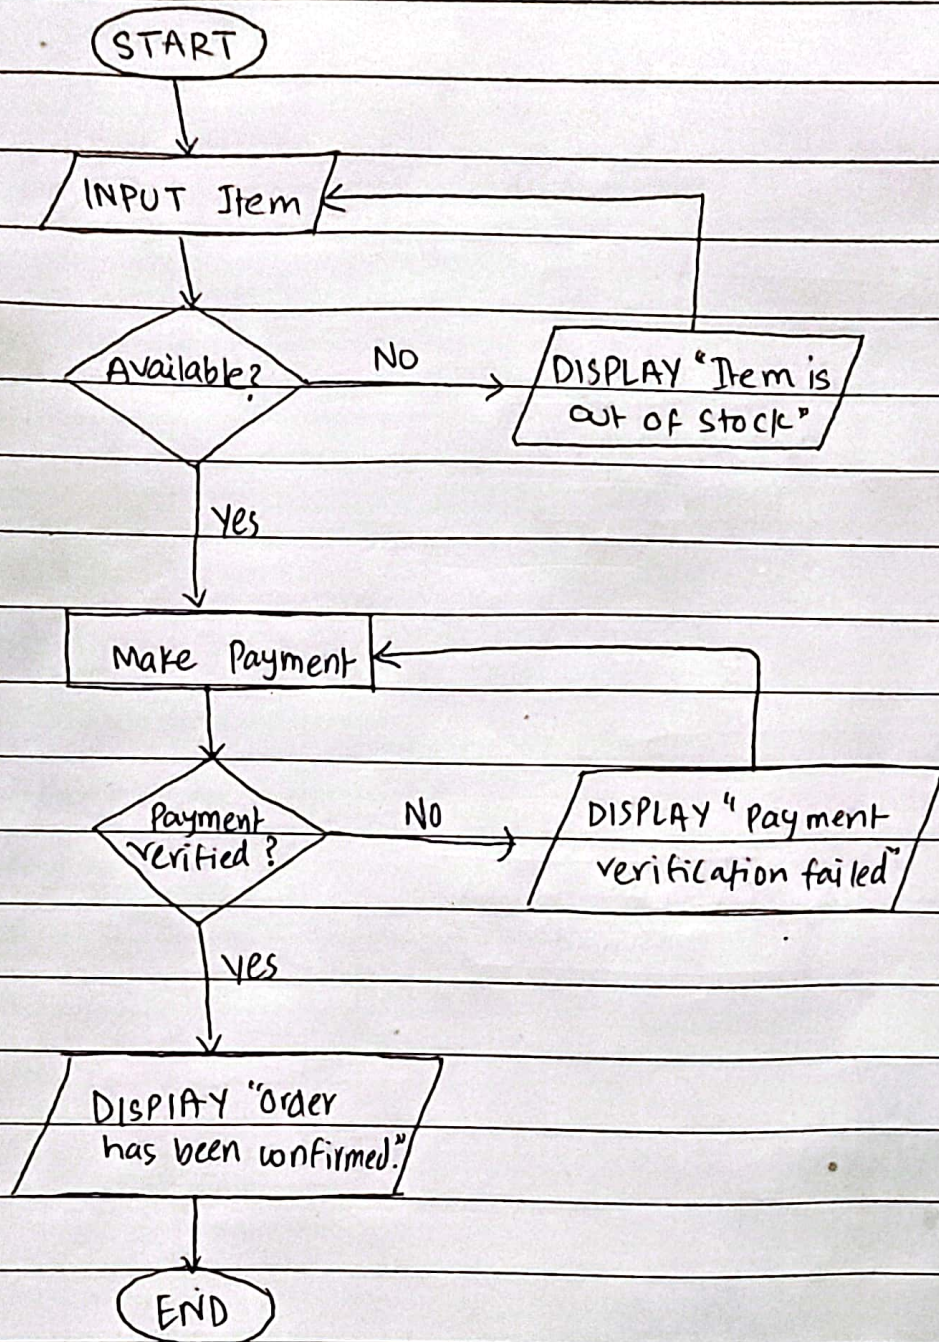 START
INPUT Item
Available?
NO
DISPLAY "Item is
out of stock"
yes
Make Payment
Payment
verified?
NO
DISPLAY "Payment
verification failed"
yes
DISPLAY "Order
has been confirmed."
END